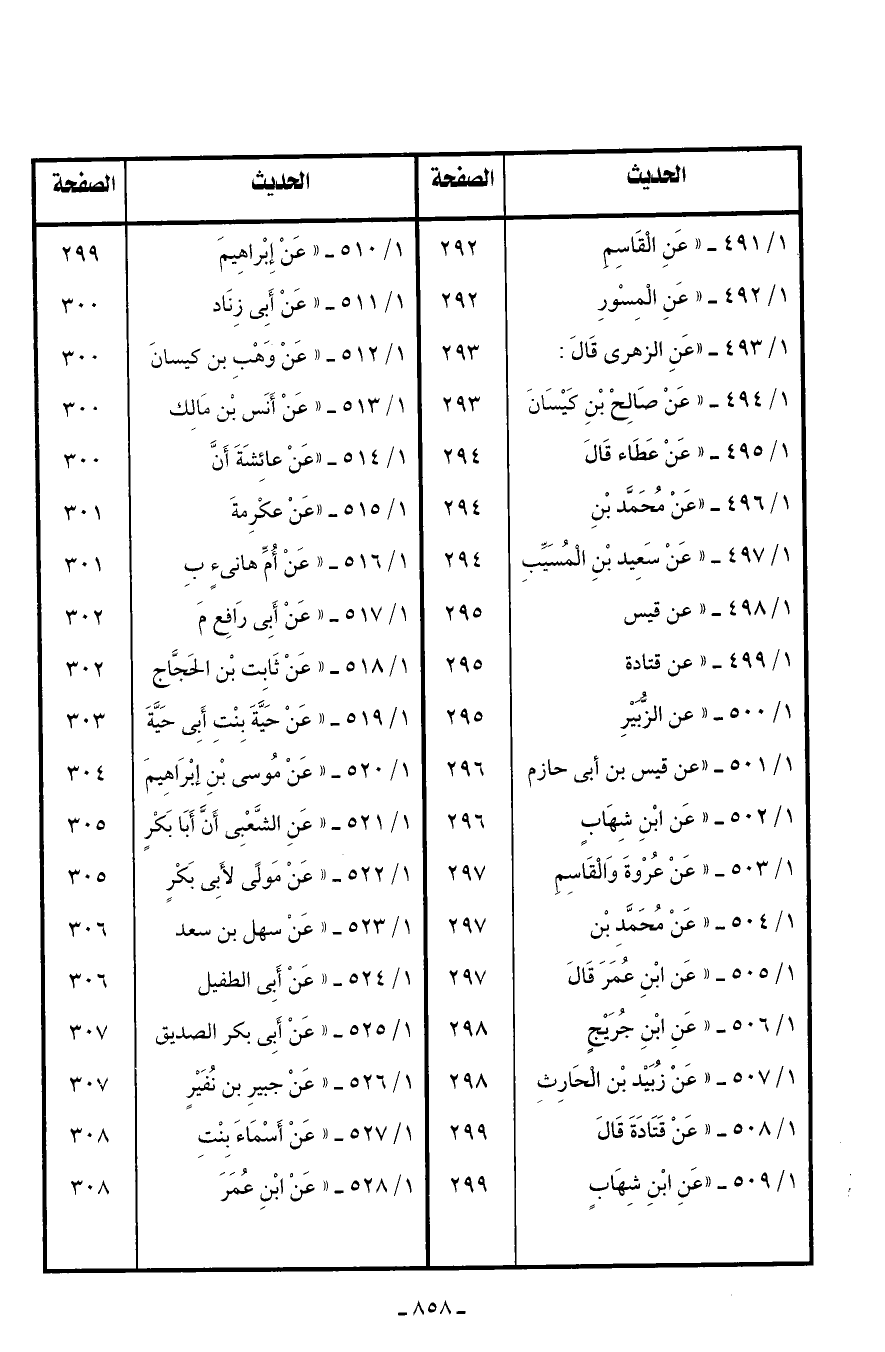 الحديث الصفحة الحديث الصفحة
١/ ٤٩١ ـ « عَنِ الْقَاسِمِ ٢٩٢ ١/ ٥١٠ ـ « عَنْ إِبْراهِيمَ ٢٩٩
١/ ٤٩٢ ـ « عَنِ الْمِسْوَرِ ٢٩٢ ١/ ٥١١ ـ « عَنْ أَبِى زِنَاد ٣٠٠
١/ ٤٩٣ ـ «عَنِ الزهرى قَالَ : ٢٩٣ ١/ ٥١٢ ـ « عَنْ وَهْبِ بن كيسانَ ٣٠٠
١/ ٤٩٤ ـ « عَنْ صَالِحْ بْنِ كَيْسَانَ ٢٩٣ ١/ ٥١٣ ـ « عَنْ أَنَس بْن مَالِك ٣٠٠
١/ ٤٩٥ ـ « عَنْ عَطَاء قَالَ ٢٩٤ ١/ ٥١٤ ـ «عَنْ عائِشَةَ أَنَّ ٣٠٠
١/ ٤٩٦ ـ «عَنْ مُحَمَّد بْنِ ٢٩٤ ١/ ٥١٥ ـ «عَنْ عكْرِمةَ ٣٠١
١/ ٤٩٧ ـ « عَنْ سَعِيد بْنِ الْمُسَيِّبِ ٢٩٤ ١/ ٥١٦ ـ « عَنْ أُمِّ هانىءٍ بِ ٣٠١
١/ ٤٩٨ ـ « عن قيس ٢٩٥ ١/ ٥١٧ ـ « عَنْ أَبِى رَافِع مَ ٣٠٢
١/ ٤٩٩ ـ « عن قتادة ٢٩٥ ١/ ٥١٨ ـ « عَنْ ثَابِت بْن الحَجَّاج ٣٠٢
١/ ٥٠٠ ـ « عن الزُّبَيْرِ ٢٩٥ ١/ ٥١٩ ـ « عَنْ حَيَّةَ بِنْتِ أَبِى حَيَّةَ ٣٠٣
١/ ٥٠١ ـ «عن قيس بن أبى حازم ٢٩٦ ١/ ٥٢٠ ـ « عَنْ مُوسى بْنِ إِبْرَاهِيمَ ٣٠٤
١/ ٥٠٢ ـ « عَن ابْنِ شِهَابٍ ٢٩٦ ١/ ٥٢١ ـ « عَنِ الشَّعْبِى أَنَّ أَبَا بَكْرٍ ٣٠٥
١/ ٥٠٣ ـ « عَنْ عُرْوةَ وَالْقَاسِمِ ٢٩٧ ١/ ٥٢٢ ـ « عَنْ مَولًى لأَبِى بَكْرٍ ٣٠٥
١/ ٥٠٤ ـ « عَنْ مُحَمَّد بْن ٢٩٧ ١/ ٥٢٣ ـ « عَنْ سهل بن سعد ٣٠٦
١/ ٥٠٥ ـ « عَنِ ابْنِ عُمَرَ قَالَ ٢٩٧ ١/ ٥٢٤ ـ « عَنْ أَبِى الطفيل ٣٠٦
١/ ٥٠٦ ـ « عَنِ ابْنِ جُرَيْجٍ ٢٩٨ ١/ ٥٢٥ ـ « عَنْ أَبِى بكر الصديق ٣٠٧
١/ ٥٠٧ ـ « عَنْ زُبَيْد بْن الْحَارِثِ ٢٩٨ ١/ ٥٢٦ ـ « عَنْ جبير بن نُفَيْرٍ ٣٠٧
١/ ٥٠٨ ـ « عَنْ قَتَادَةَ قَالَ ٢٩٩ ١/ ٥٢٧ ـ « عَنْ أَسْمَاءَ بِنْتِ ٣٠٨
١/ ٥٠٩ ـ «عَنِ ابْنِ شِهَابٍ ٢٩٩ ١/ ٥٢٨ ـ « عَنْ ابْنِ عُمَرَ ٣٠٨
ـ ٨٥٨ ـ